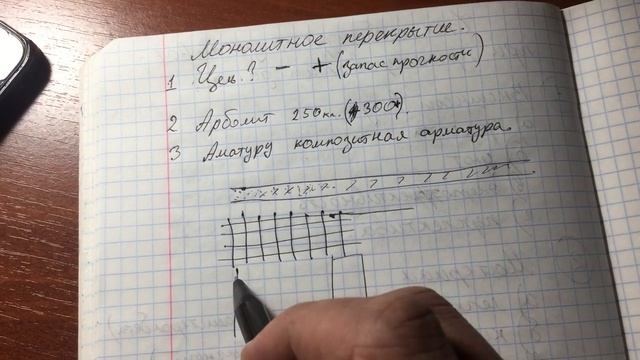 Монолитное перекрытие.
1 Цена? - + (запас прочности)
2 Арболит 250кг. (300+)
3 Аматуру композитная арматура.